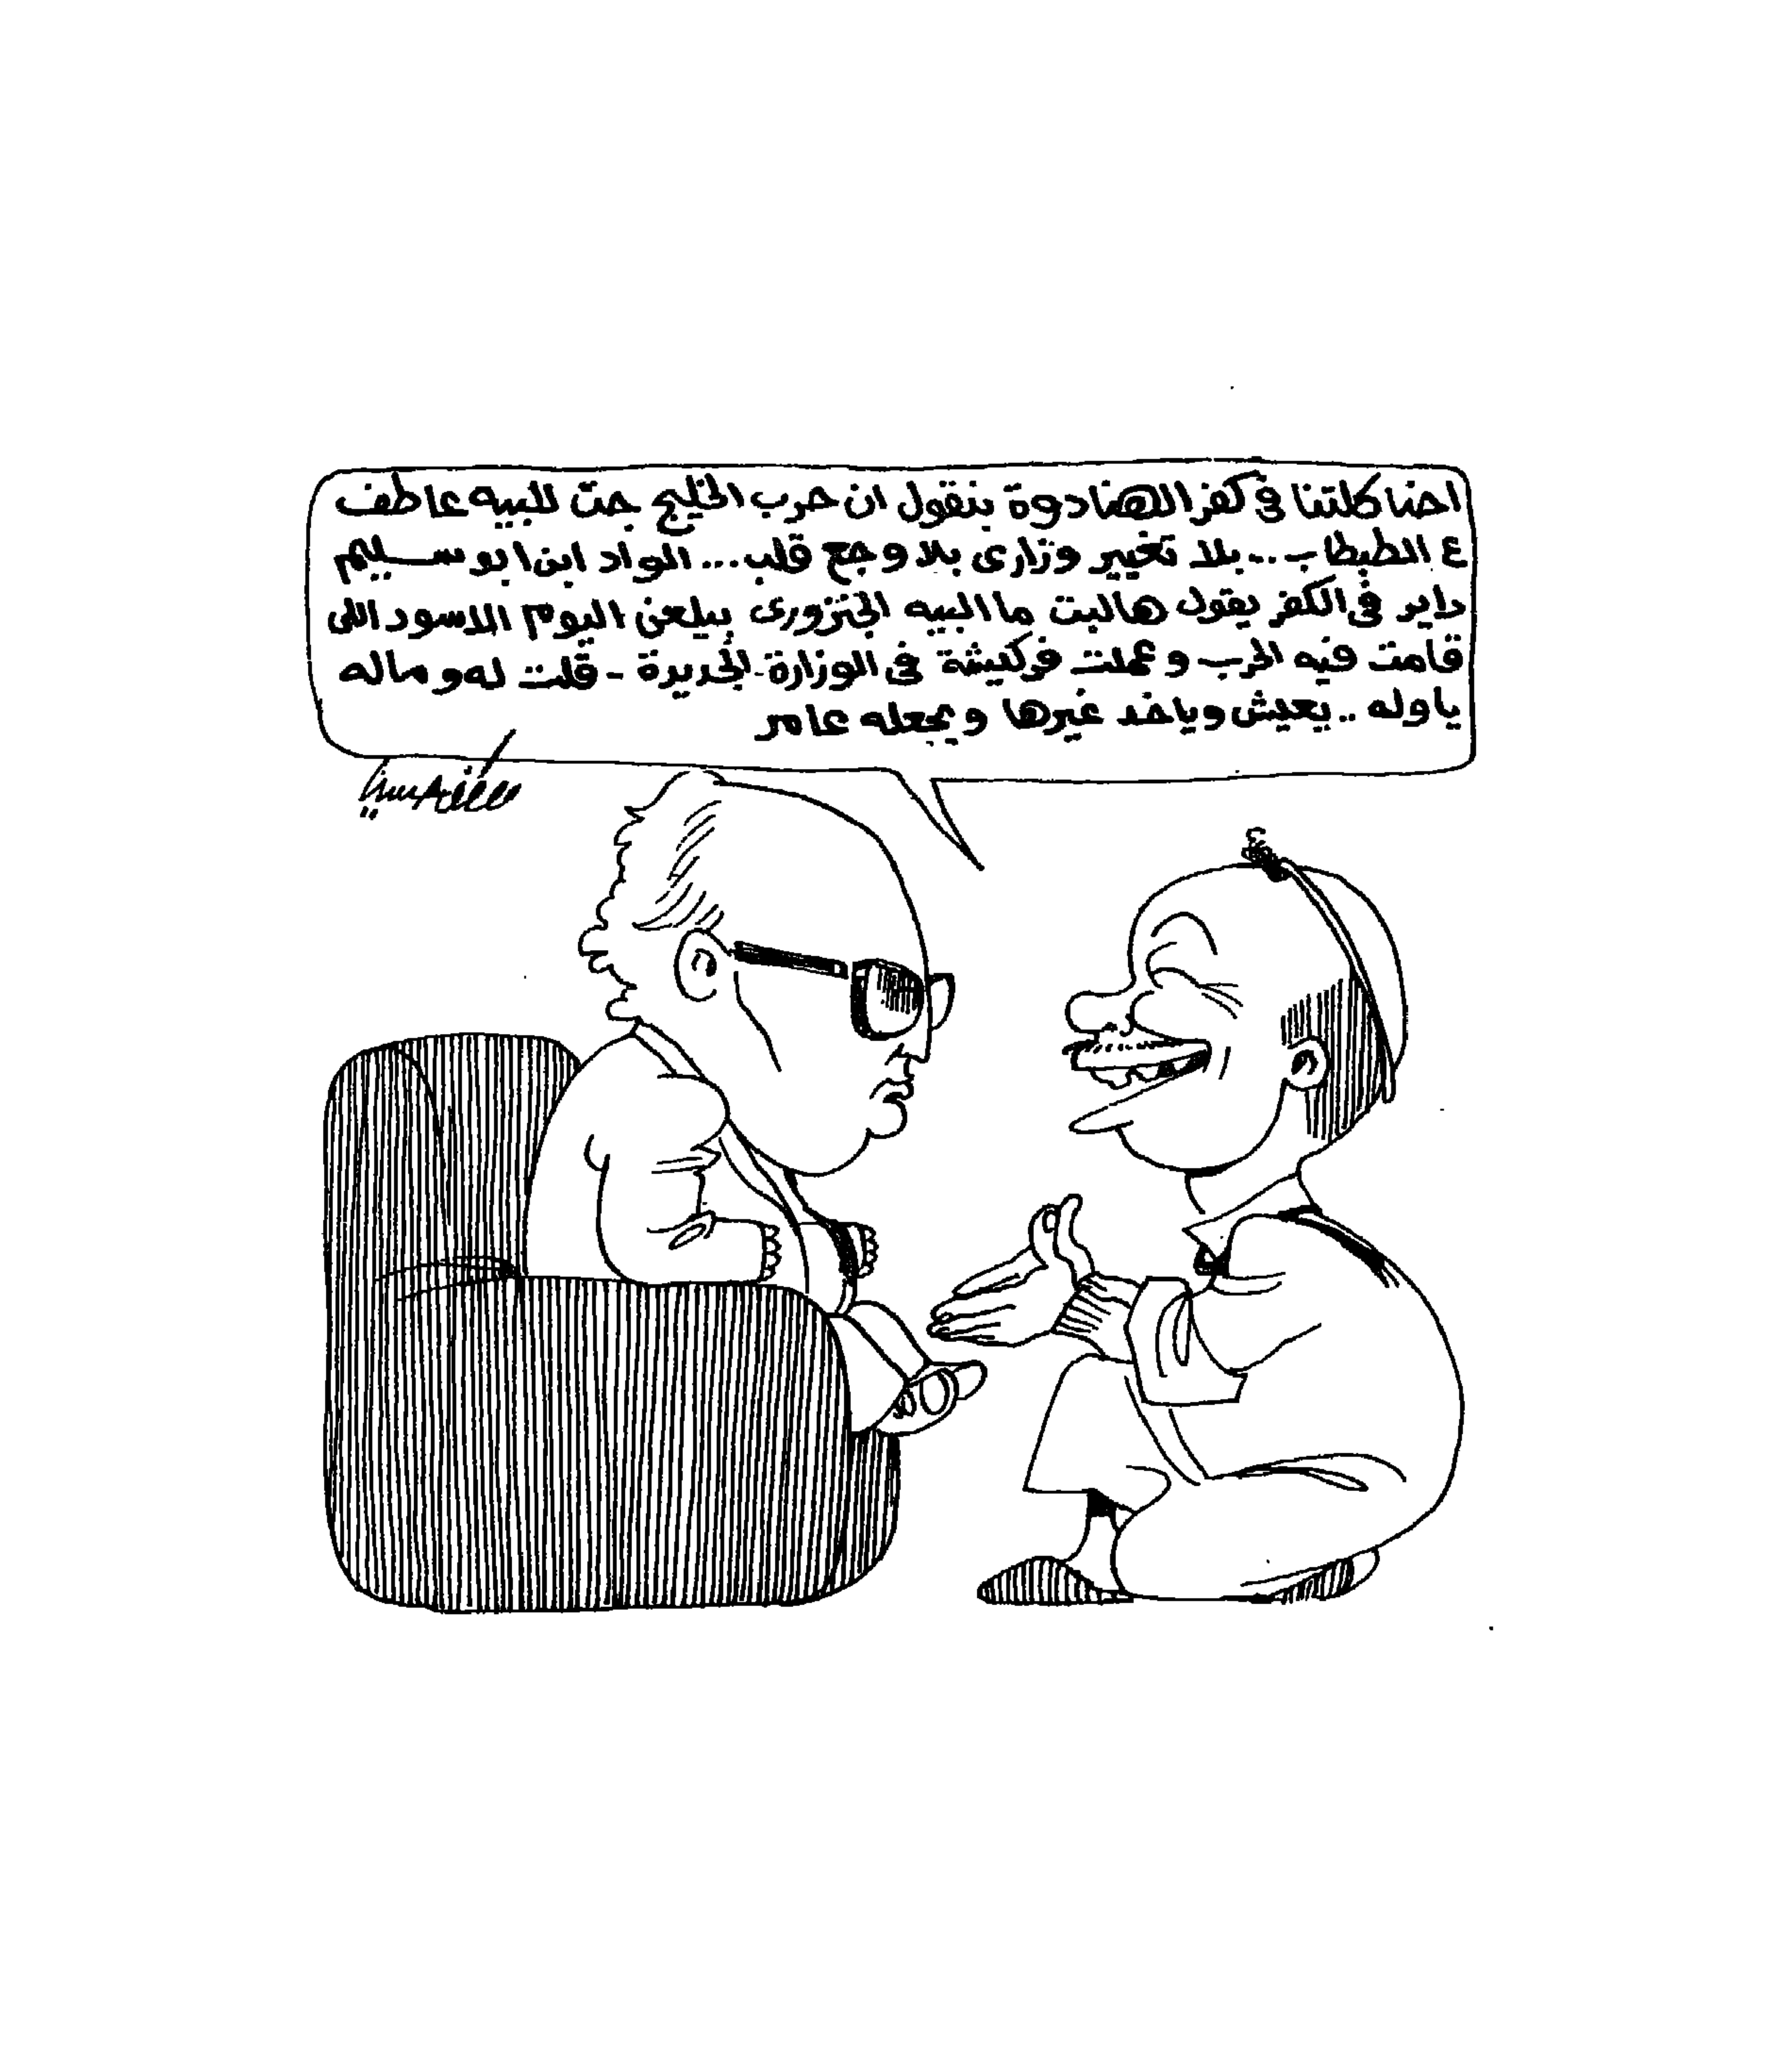 احنا كلتنا فى كفر الهنادوة بنقول ان حرب الخليج جت للبيه عاطف
ع الطبطاب... بلا تغيير وزارى بلا وجع قلب... الواد ابن ابو سليم
داير فى الكفر يقول هالبت ما البيه الجنزورى بيلعن اليوم الاسود اللى
قامت فيه الحرب وعملت فركشة فى الوزارة الجديدة - قلت له وماله
ياوله .. يعيش وياخد غيرها ويجعله عامر